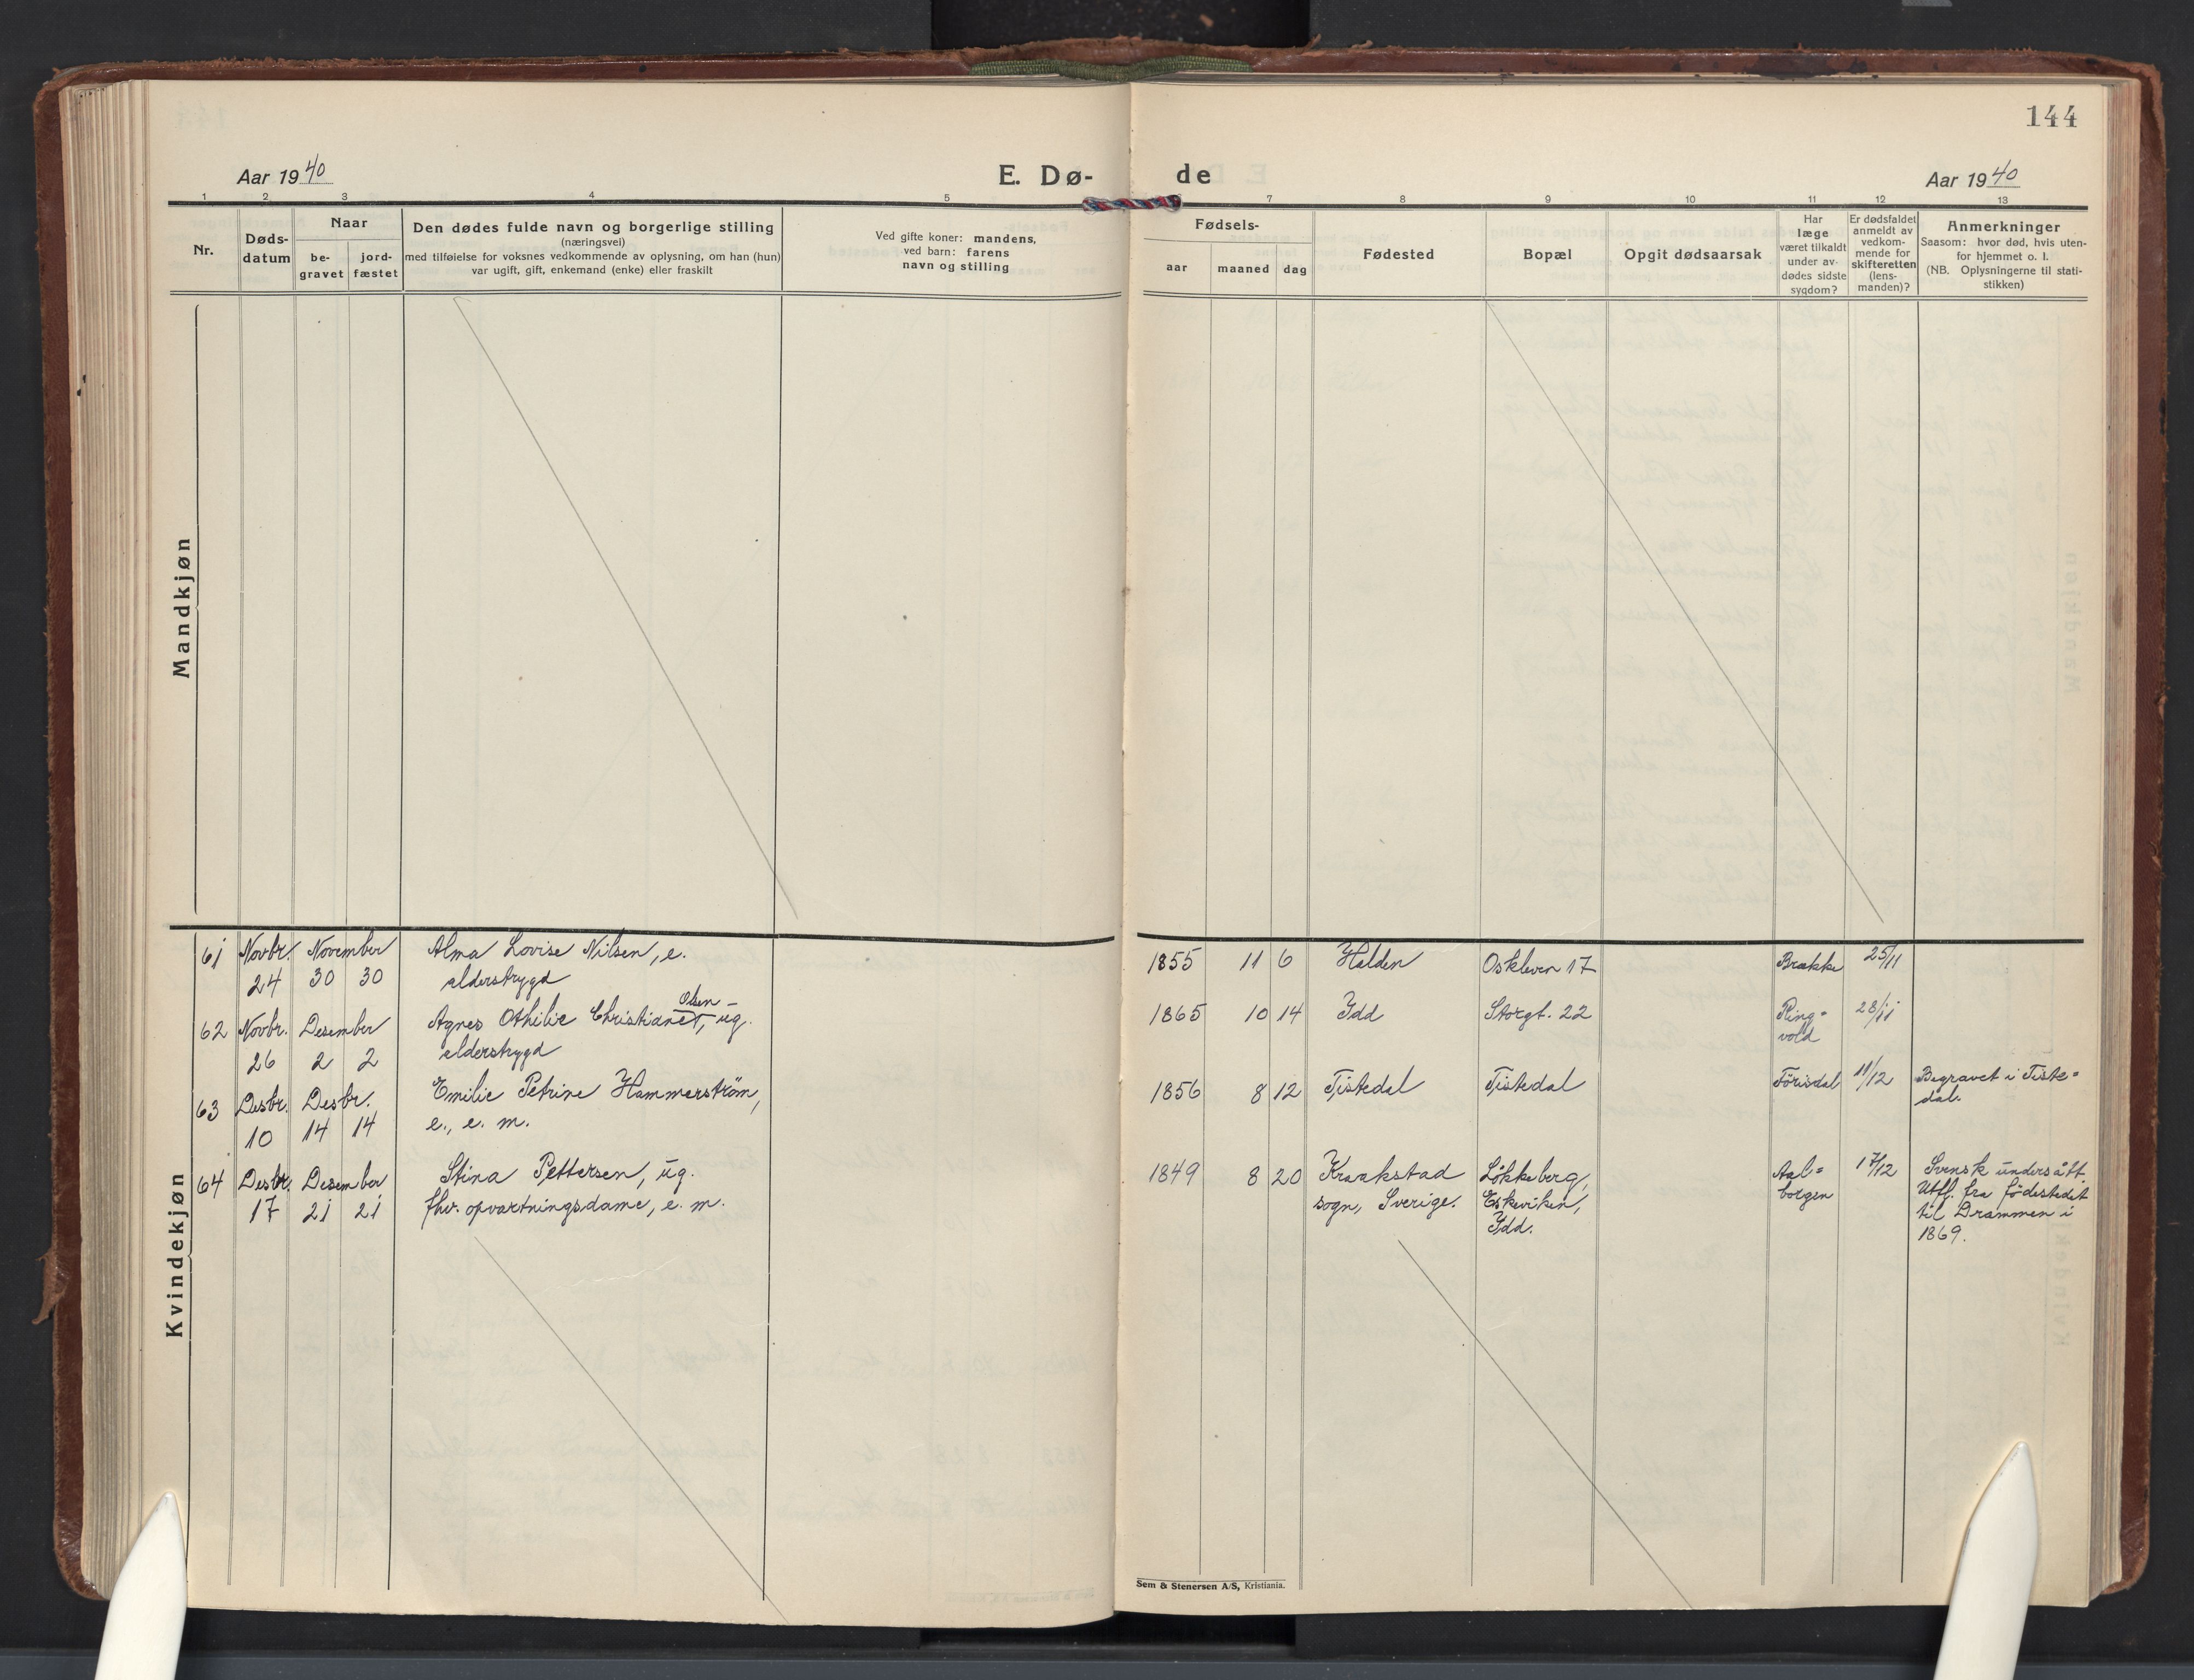 144
Aar 1940
E. Dø-
de
Aar 1940
1 2 3 4 5 7 8 9 10 11 12 13
Nr.
Døds-
datum
Naar
be-
gravet
jord-
fæstet
Den dødes fulde navn og borgerlige stilling
(næringsvei)
med tilføielse for voksnes vedkommende av oplysning, om han (hun)
var ugift, gift, enkemand (enke) eller fraskilt
Ved gifte koner: mandens,
ved barn: farens
navn og stilling
Fødsels-
aar maaned dag
Fødested
Bopæl
Opgit dødsaarsak
Har
læge
været tilkaldt
under av-
dødes sidste
sygdom?
Er dødsfaldet
anmeldt av
vedkom-
mende for
skifteretten
(lens-
manden)?
Anmerkninger
Saasom: hvor død, hvis uten-
for hjemmet o. l.
(NB. Oplysningerne til stati-
stikken)
Mandkjøn
Kvindekjøn
61 Novbr. November Alma Lovise Nilsen, e. 1855 11 6 Halden Oskleven 17 Brække 25/11
24 30 30 alderstrygd
Olsen
62 Novbr. Desember Agnes Othilie Christiane, ug. 1865 10 14 Idd Storgt. 22 Ring- 28/11
26 2 2 alderstrygd vold
63 Desbr. Desbr. Emilie Petrine Hammerström, 1856 8 12 Tistedal Tistedal Förisdal 11/12 Begravet i Tiste-
10 14 14 e., e. m. dal.
64 Desbr. Desember Stina Pettersen, ug. 1849 8 20 Kraakstad Lökkeberg, Aal- 17/12 Svensk undersått.
17 21 21 fhv. opvartningsdame, e. m. sogn, Sverige. Eskeviken, borgen Utfl. fra födestedet
Idd. til Drammen i
1869.
Sem & Stenersen A/S, Kristiania.